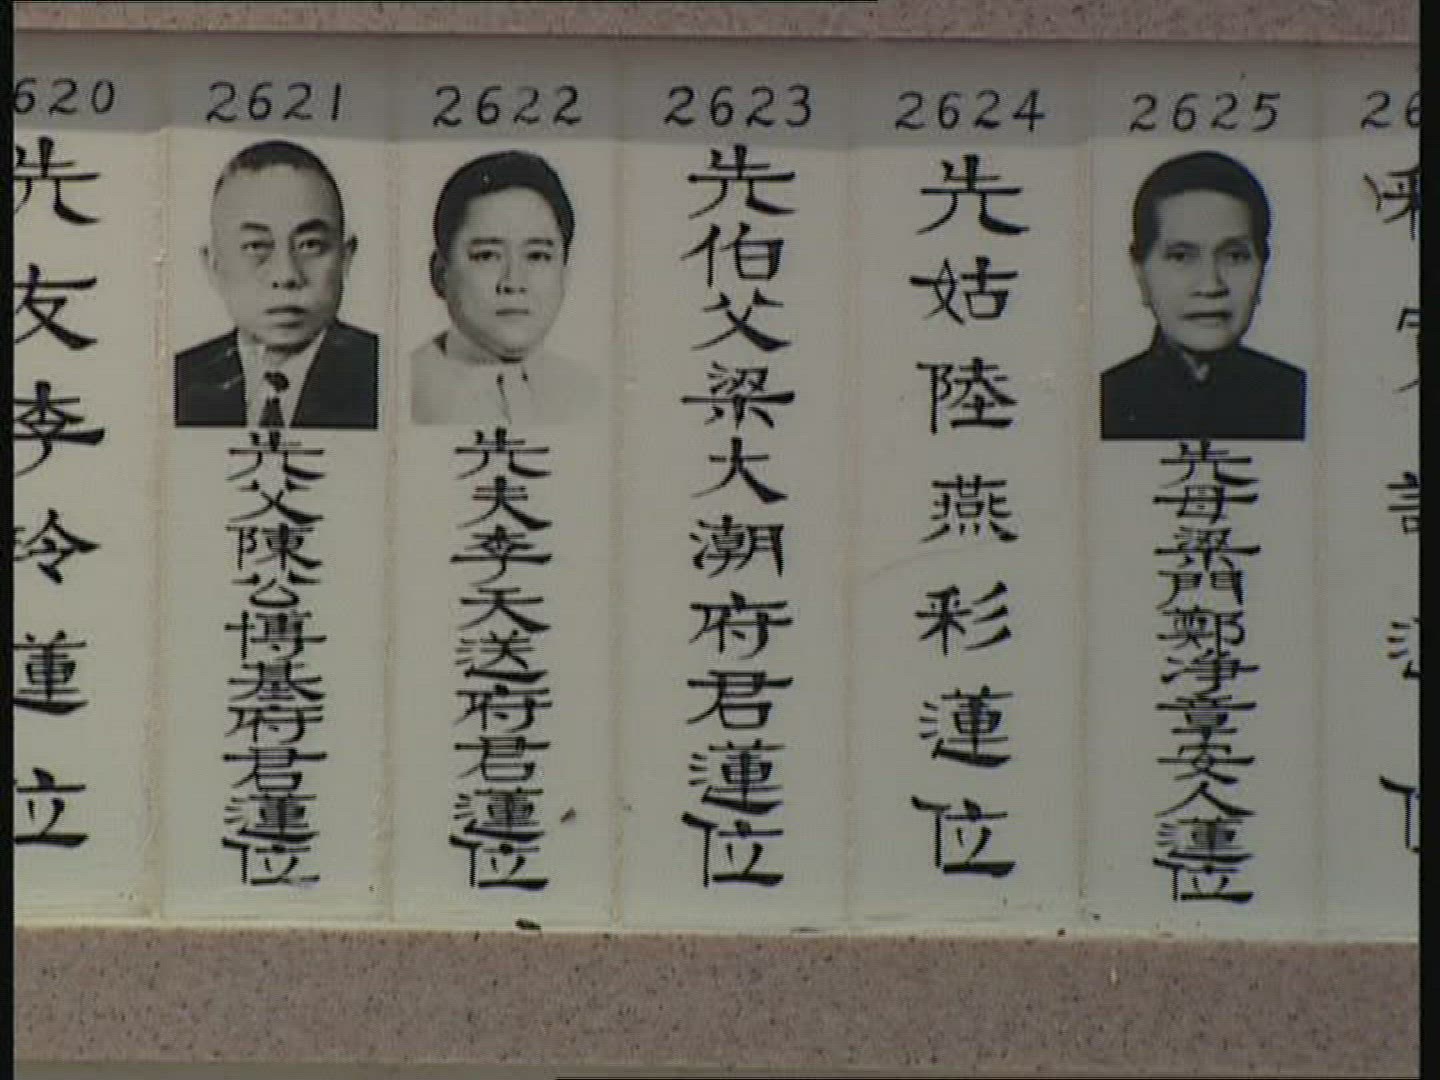 620
先友李玲蓮位
2621
先父陳公博基府君蓮位
2622
先夫李天送府君蓮位
2623
先伯父梁大潮府君蓮位
2624
先姑陸燕彩蓮位
2625
先母梁門鄭净章安人蓮位
26